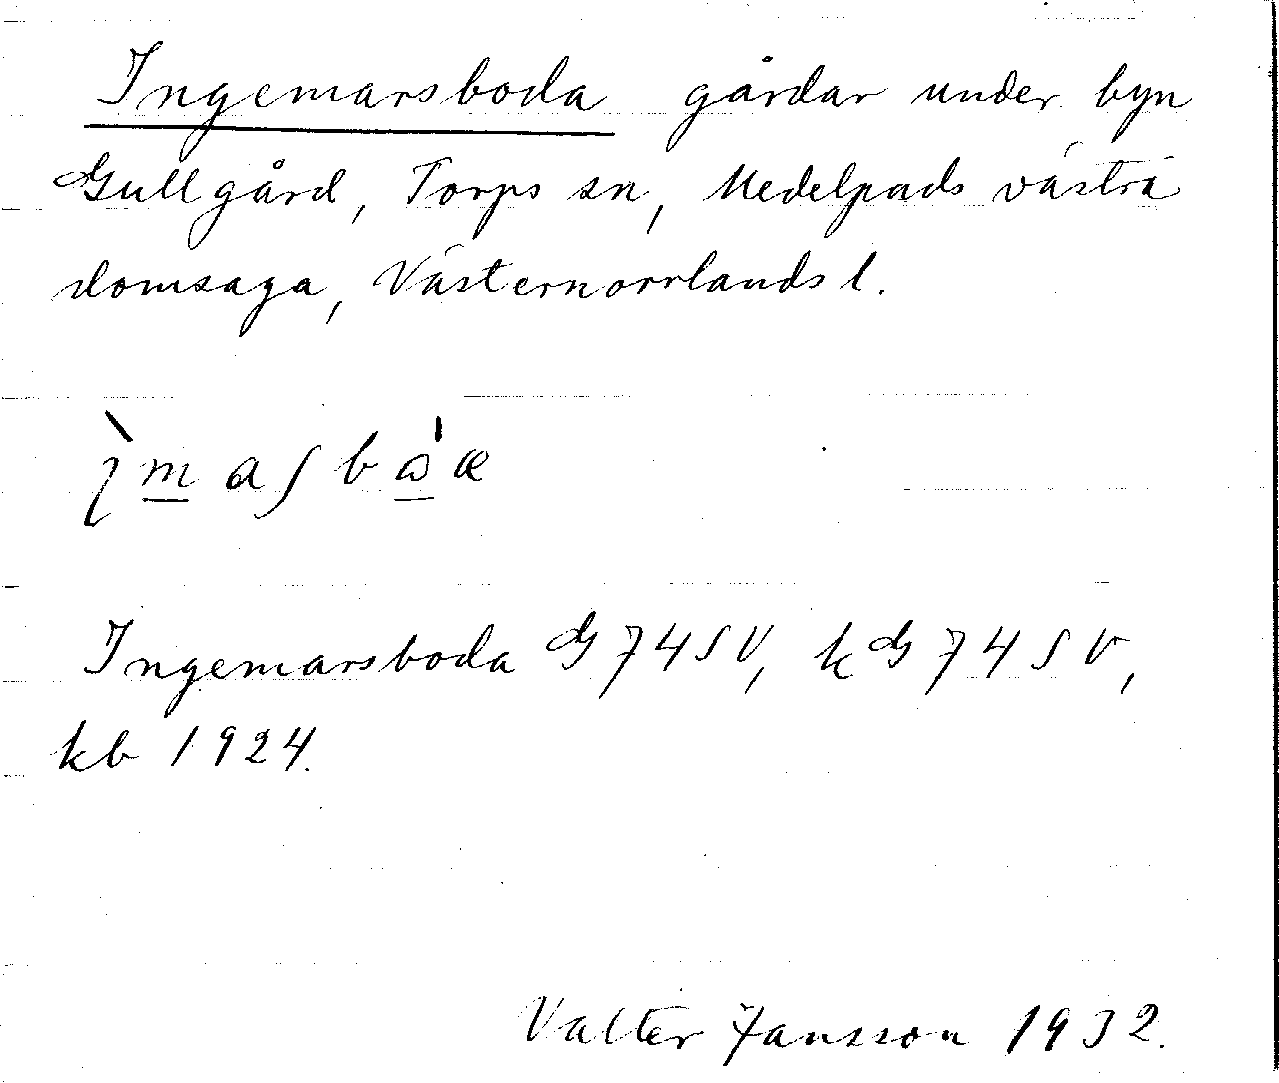 Ingemarsboda gårdar under byn
Gullgård, Torps sn, Medelpads västra
domsaga, Västernorrlands l.
Ingemarsboda G 74 SV, k G 74 SV,
kb 1924.
Valter Jansson 1932.